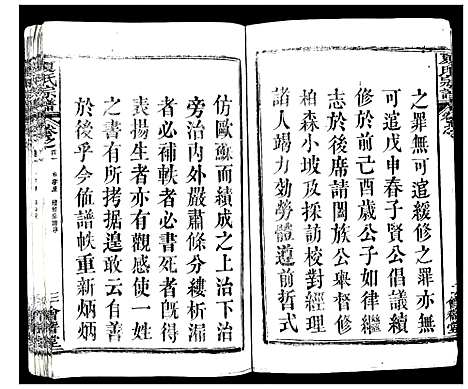 之罪無可逭緩修之罪亦無
可逭戊申春子賢公倡議續
修於前己酉歲公子如律繼
志於後席請闔族公舉督修
柏森小坡及採訪校對經理
諸人踢力効勞體遵前哲式
仿歐蘇而績成之上治下治
旁治內外嚴肅條分縷析漏
者必補軼者必書死者旣得
表揚生者亦有觀感使一姓
之書有所拷据遑敢云有善
於後乎今値譜軼重新炳炳